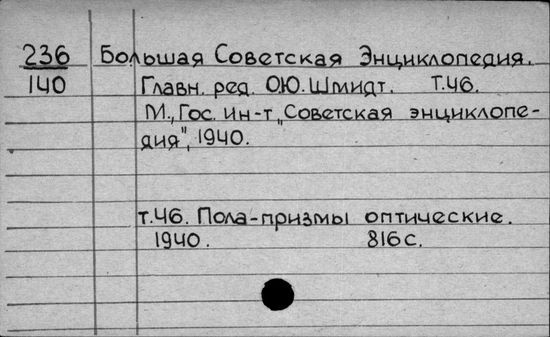 236 Большая Советская Энциклопедия.
140 Главн. ред. О.Ю. Шмидт. Т.46.
М., Гос. ин-т „Советская энциклопе-
дия", 1940.
т.46. Пола-призмы оптические.
1940. 816 с.